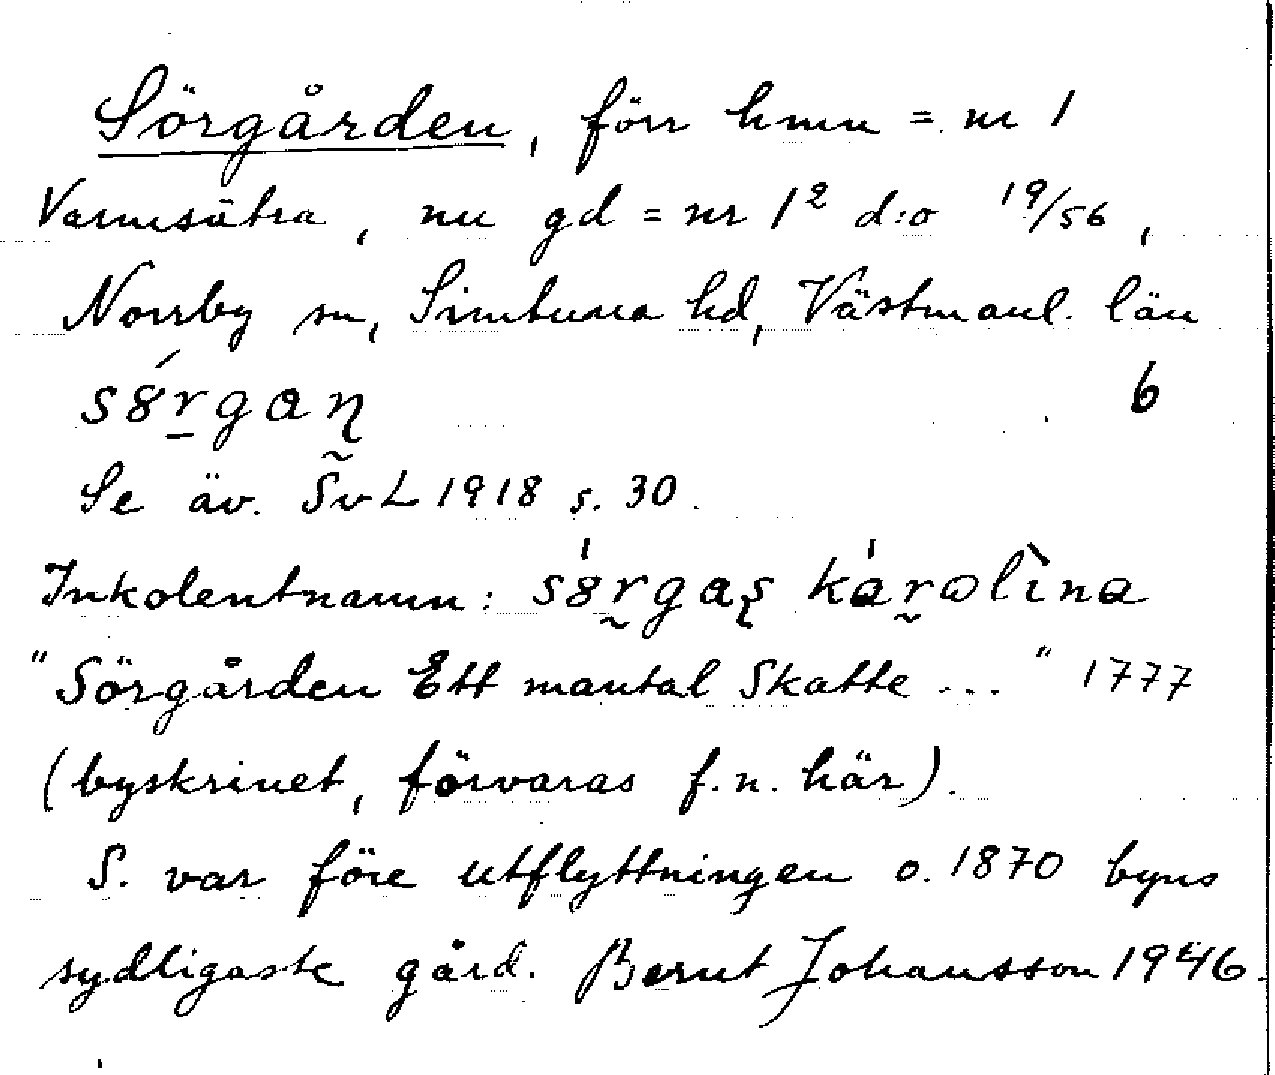 Sörgården, förr hmn = nr 1
Varmsätra, nu gd = nr 1² d:o 19/56,
Norrby sn, Simtuna hd, Västmanl. län
sȣ́rgaɳ 6
Se äv. SvL 1918 s. 30.
Inkolentnamn: sȣ́rgaʂ károlìna
"Sörgården Ett mantal Skatte ... " 1777
(byskrinet, förvaras f.n. här).
S. var före utflyttningen o. 1870 byns
sydligaste gård. Bernt Johansson 1946.